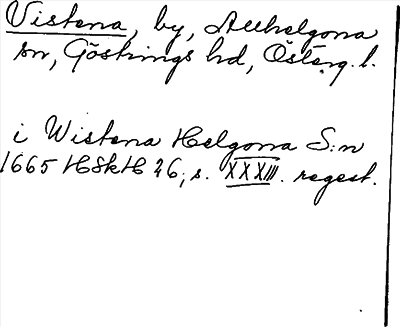 Vistena, by, Allhelgona
sn, Göstrings hd, Österg. l.
i Wistena Helgona S:n
1665 HSkH 26; s. XXXIII. regest.